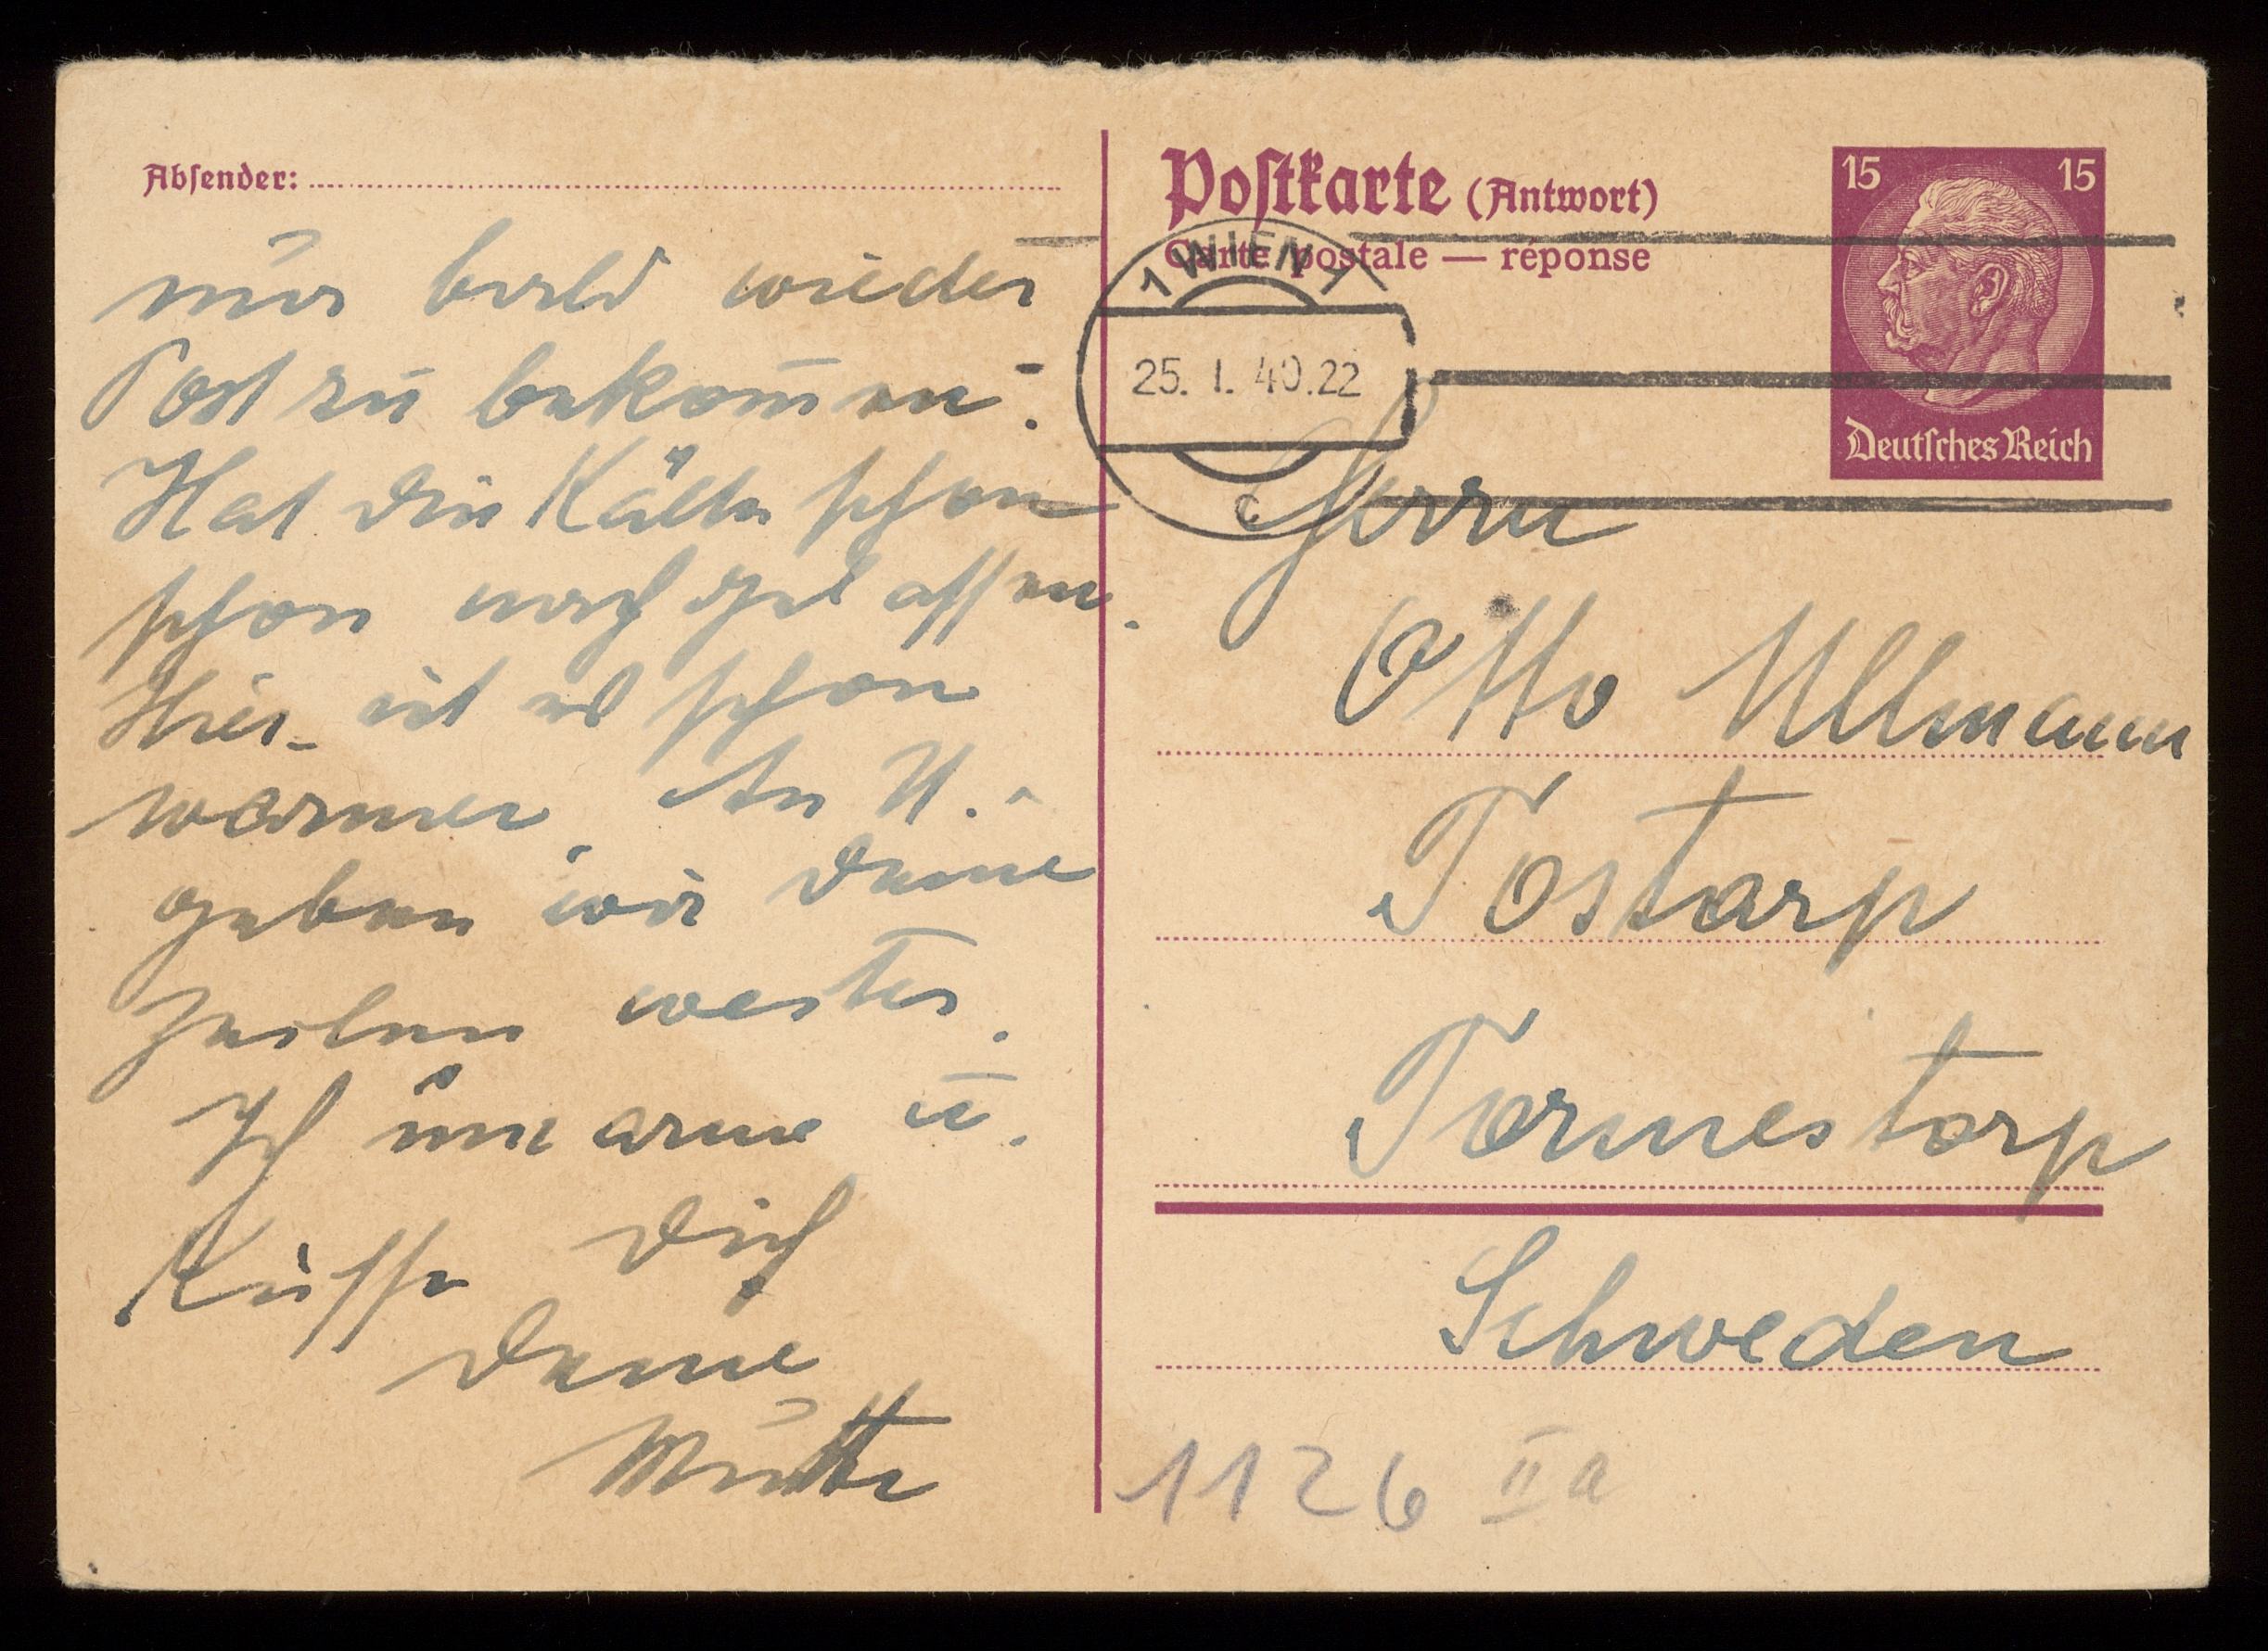 Absender:
nur bald wieder
Post zu bekommen.
Hat die Kälte schon
schon nachgelassen.
Hier ist es schon
warmer. An U.
geben wir Deine
Zeilen weiter.
Ich umarme u.
Küsse Dich
Deine
Mutti
Postkarte (Antwort)
Carte postale — réponse
15 15
Deutsches Reich
1 WIEN 1
25. 1. 40. 22
c
Herrn
Otto Ullmann
Tostarp
Tormestorp
Schweden
1126 IIa